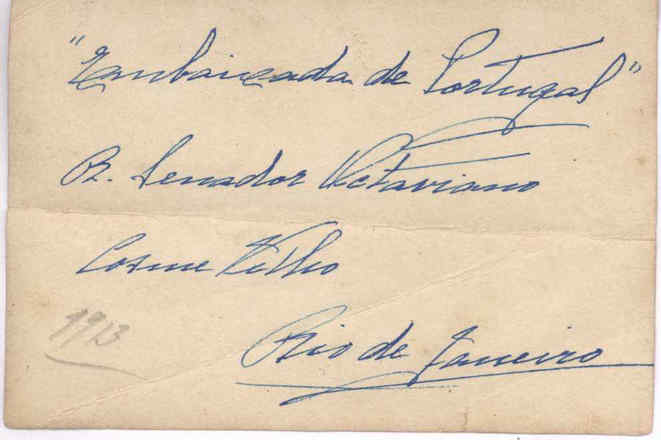 "Embaixada de Portugal"
R. Senador Octaviano
Cosme Velho
1913
Rio de Janeiro